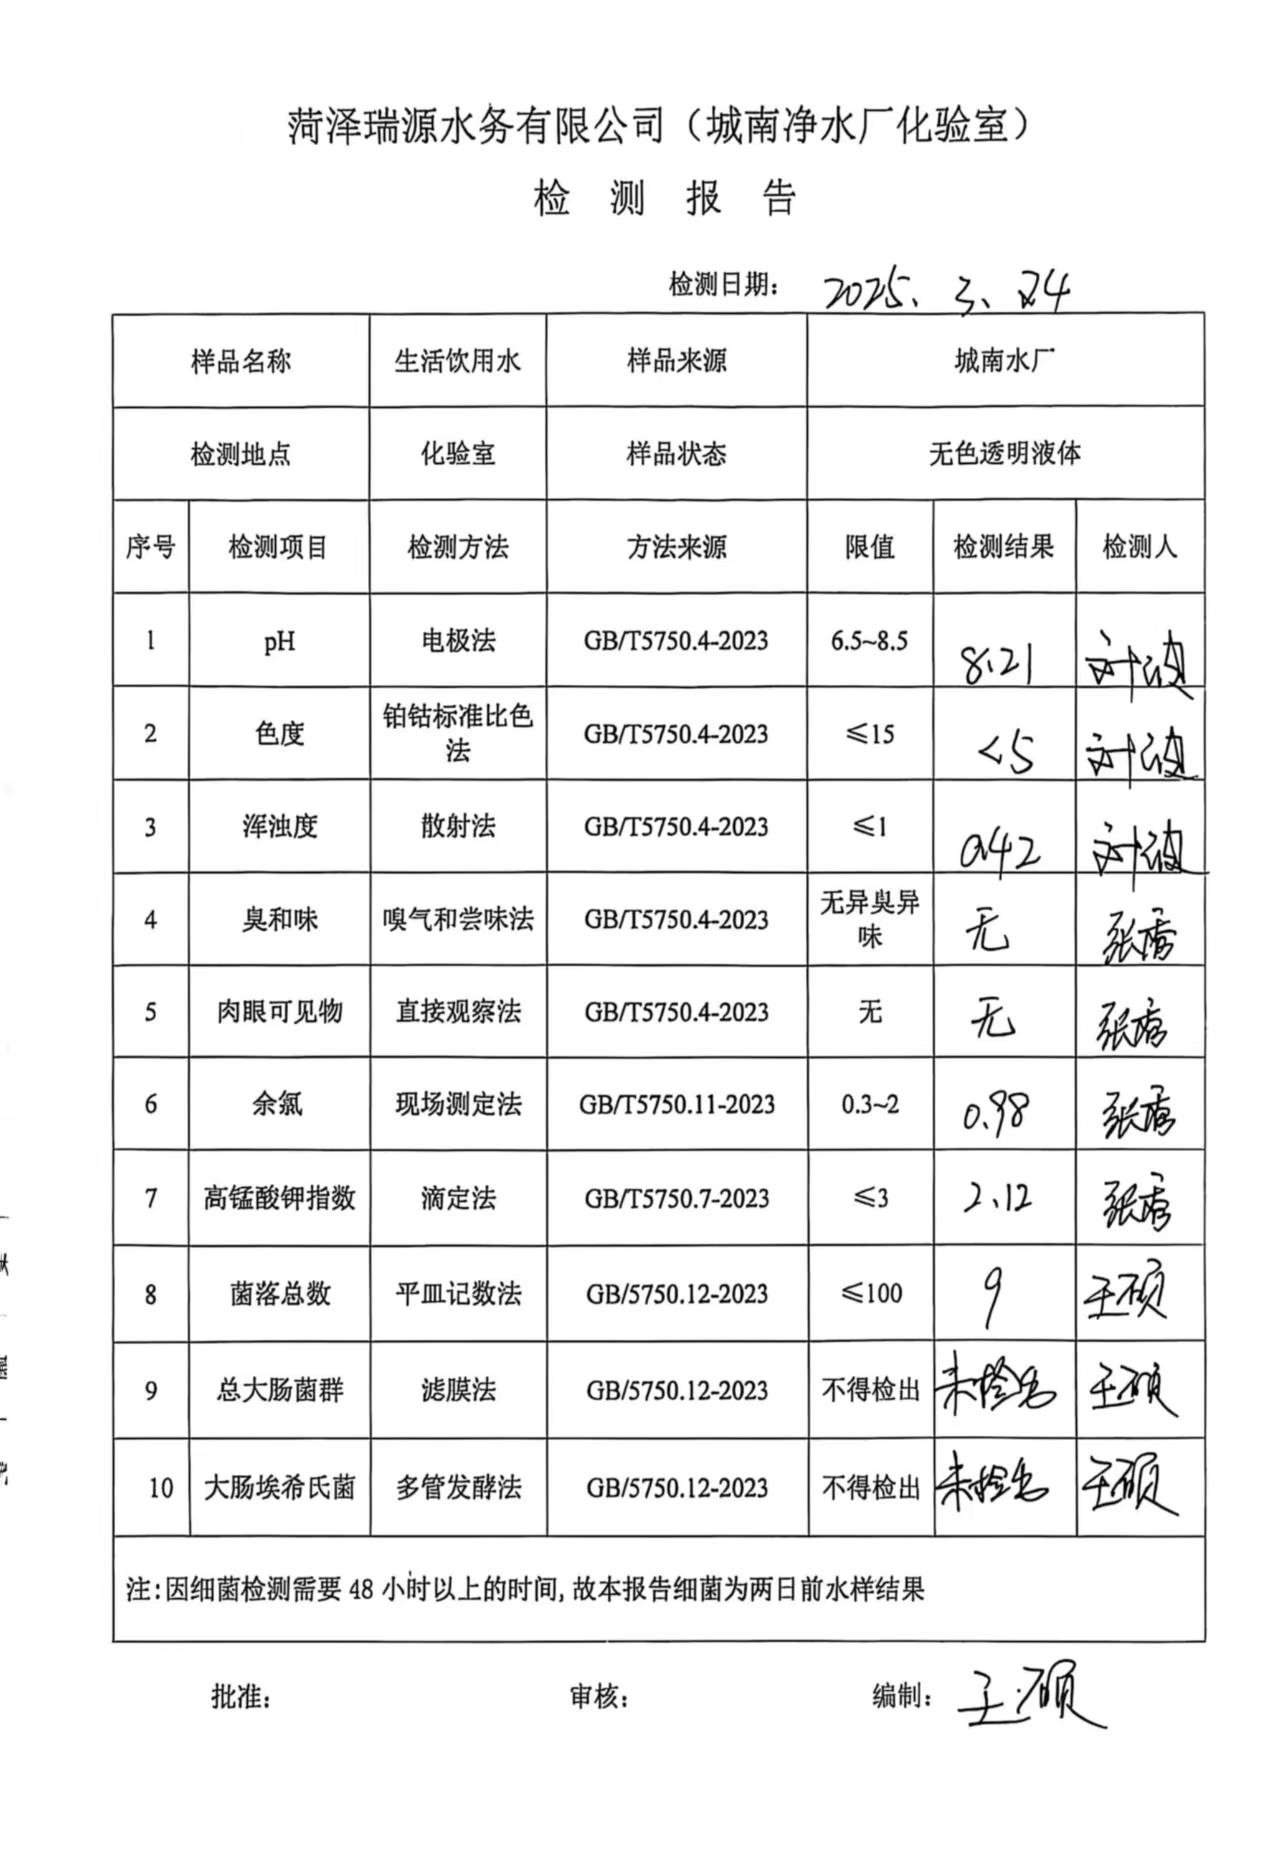 菏泽瑞源水务有限公司（城南净水厂化验室）
检 测 报 告
检测日期： 2025. 3. 24
样品名称 生活饮用水 样品来源 城南水厂
检测地点 化验室 样品状态 无色透明液体
序号 检测项目 检测方法 方法来源 限值 检测结果 检测人
1 pH 电极法 GB/T5750.4-2023 6.5~8.5 8.21 刘波
2 色度 铂钴标准比色法 GB/T5750.4-2023 ≤15 <5 刘波
3 浑浊度 散射法 GB/T5750.4-2023 ≤1 0.42 刘波
4 臭和味 嗅气和尝味法 GB/T5750.4-2023 无异臭异味 无 张
5 肉眼可见物 直接观察法 GB/T5750.4-2023 无 无 张
6 余氯 现场测定法 GB/T5750.11-2023 0.3~2 0.98 张
7 高锰酸钾指数 滴定法 GB/T5750.7-2023 ≤3 2.12 张
8 菌落总数 平皿记数法 GB/5750.12-2023 ≤100 9 王硕
9 总大肠菌群 滤膜法 GB/5750.12-2023 不得检出 未检出 王硕
10 大肠埃希氏菌 多管发酵法 GB/5750.12-2023 不得检出 未检出 王硕
注:因细菌检测需要 48 小时以上的时间,故本报告细菌为两日前水样结果
批准： 审核： 编制： 王硕